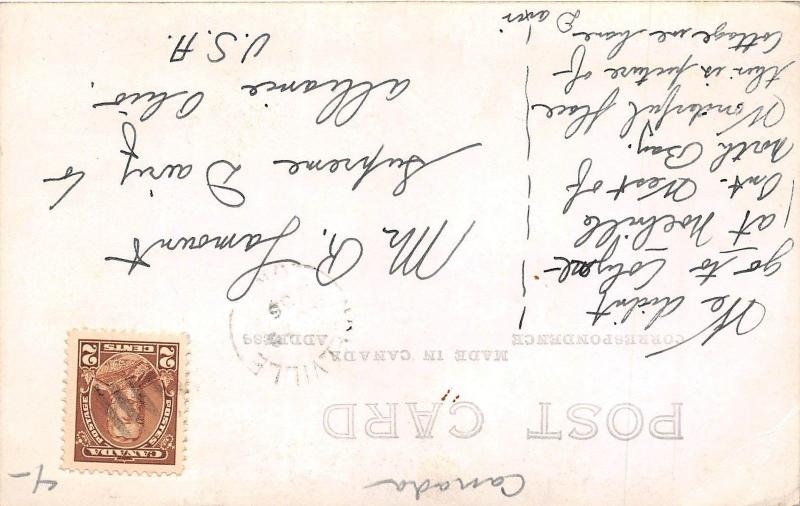 Canada
4-
POST CARD
MADE IN CANADA
CORRESPONDENCE
ADDRESS
CANADA
POSTES POSTAGE
2 CENTS 2
VILLE
We didnt
go to
at Noelville
Ont. West of
North Bay.
Wonderful place
this is picture of
Cottage we have
Mr. R. Lamount
Supreme Dairy Co
Alliance Ohio.
U.S.A.